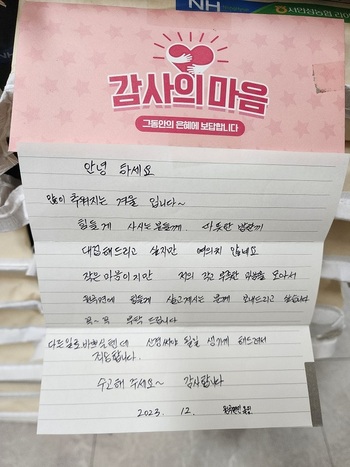 NH
감사의 마음
그동안의 은혜에 보답합니다
안녕 하세요
많이 추워지는 겨울 입니다~
힘들게 사시는분들께 따뜻한 밥한끼
대접해드리고 싶지만 여의치 않네요
작은 마음이지만 저의 작고 부족한 마음을 모아서
힘들게 살고계시는 분께 보내드리고 싶습니다
꼭~ 꼭 부탁 드립니다
다들 일로 바쁘실텐데 신경써야 될일 생기게 해드려서
죄송합니다.
수고해 주세요~ 감사합니다
2023. 12.